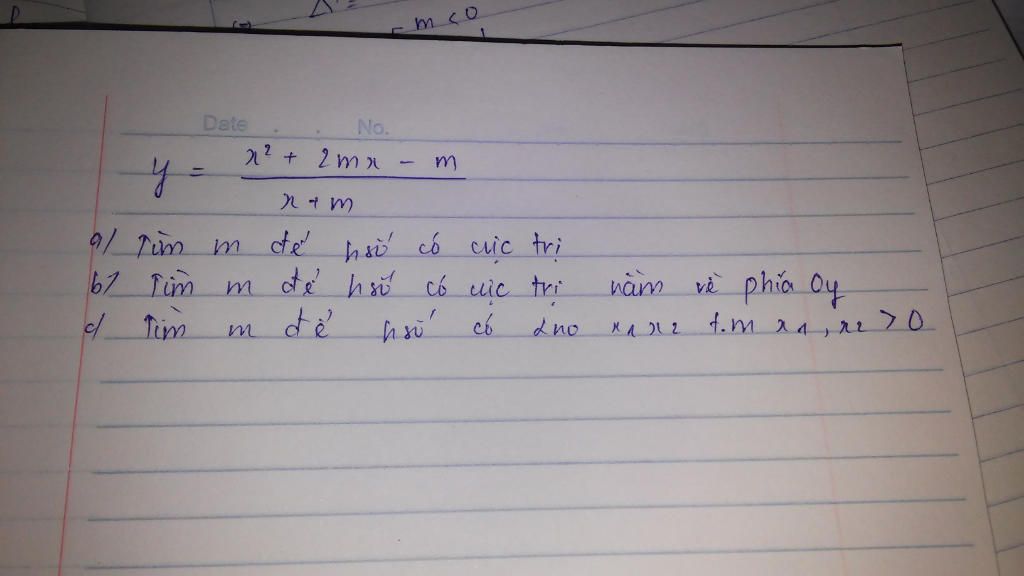 Δ' =
m < 0
Date . . No.
y = \frac{x² + 2mx - m}{x + m}
a) Tìm m để hsố có cực trị
b) Tìm m để hsố có cực trị nằm về phía Oy
c) Tìm m để hsố có 2no x₁ x₂ t.m x₁, x₂ > 0